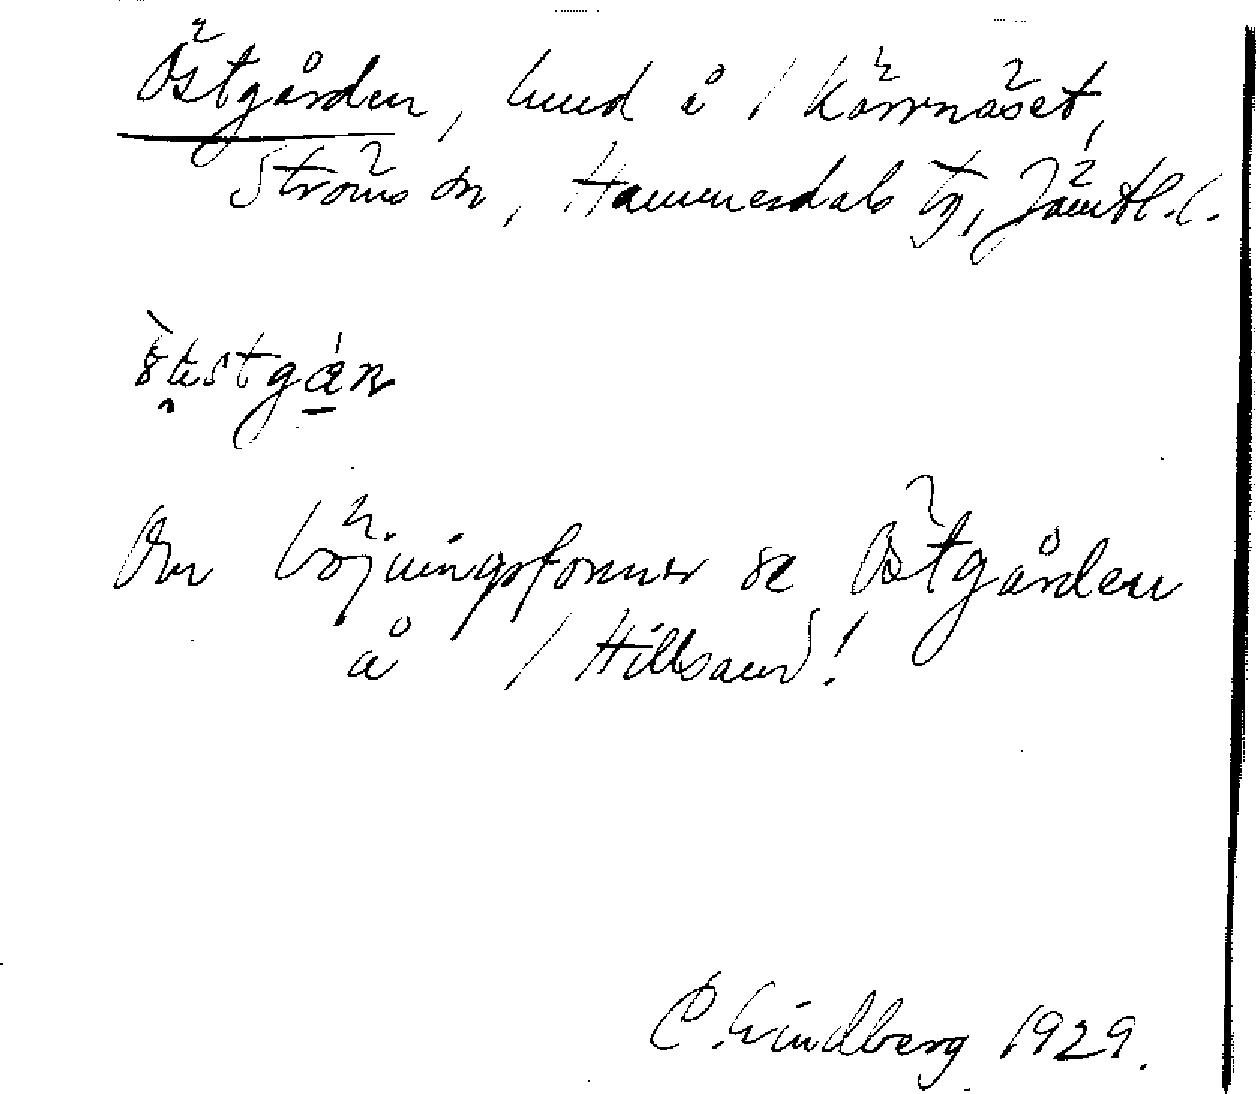 Östgården, hmd å / Kärrnäset,
Ströms sn, Hammerdals tg, Jämtl. l.
Om böjningsformer se Östgården
å / Hillsand!
C. Lindberg 1929.